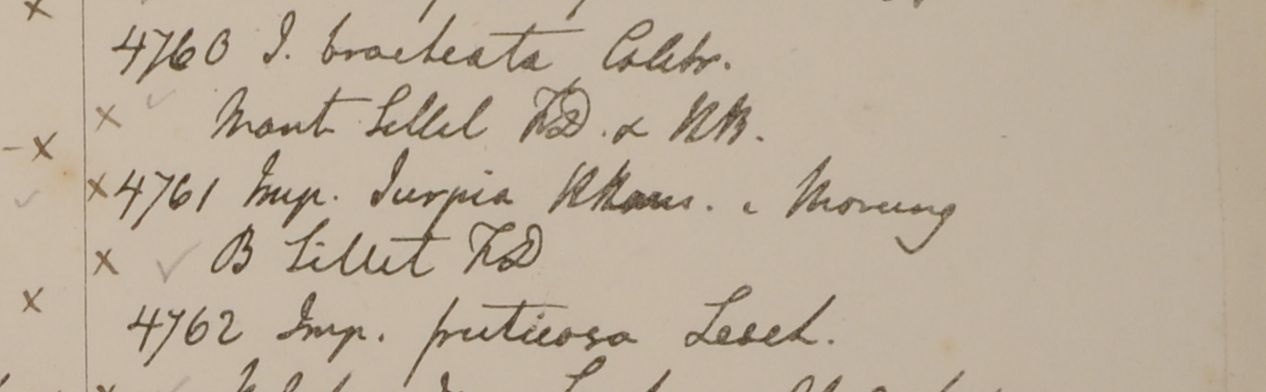 4760 I. bracteata Colebr.
Mont Sillet FD. &
4761 Imp. Turpia Morung
B Sillet FD
4762 Imp. fruticosa Lesch.